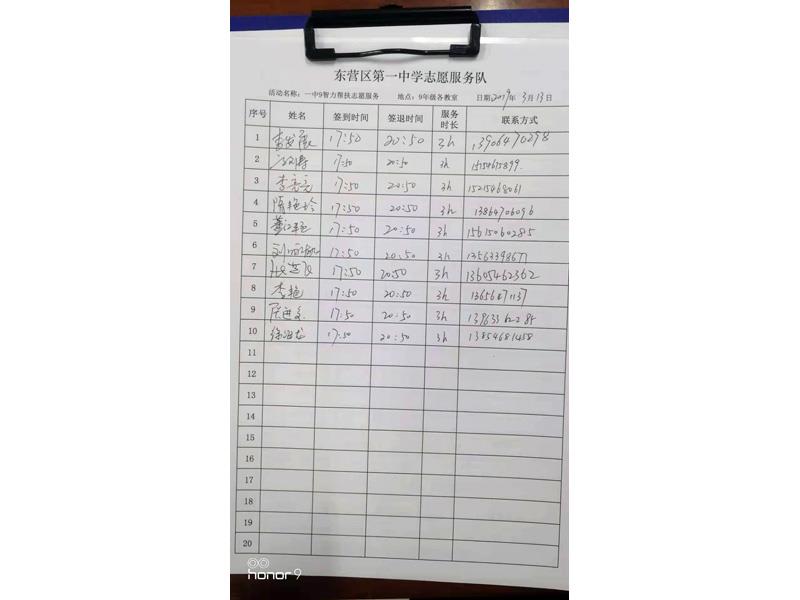 东营区第一中学志愿服务队
活动名称：一中9智力帮扶志愿服务 地点：9年级各教室 日期2019年3月13日
序号 姓名 签到时间 签退时间 服务时长 联系方式
1 17:50 20:50 3h 13906470298
2 17:50 20:50 3h 15154615899
3 李亮亮 17:50 20:50 3h 15215468061
4 陈艳玲 17:50 20:50 3h 13864706096
5 董江艳 17:50 20:50 3h 15615060285
6 17:50 20:50 3h 13563398677
7 17:50 20:50 3h 13605462362
8 李艳 17:50 20:50 3h
9 17:50 20:50 3h
10 徐海龙 17:50 20:50 3h 13854681458
11
12
13
14
15
16
17
18
19
20
honor 9